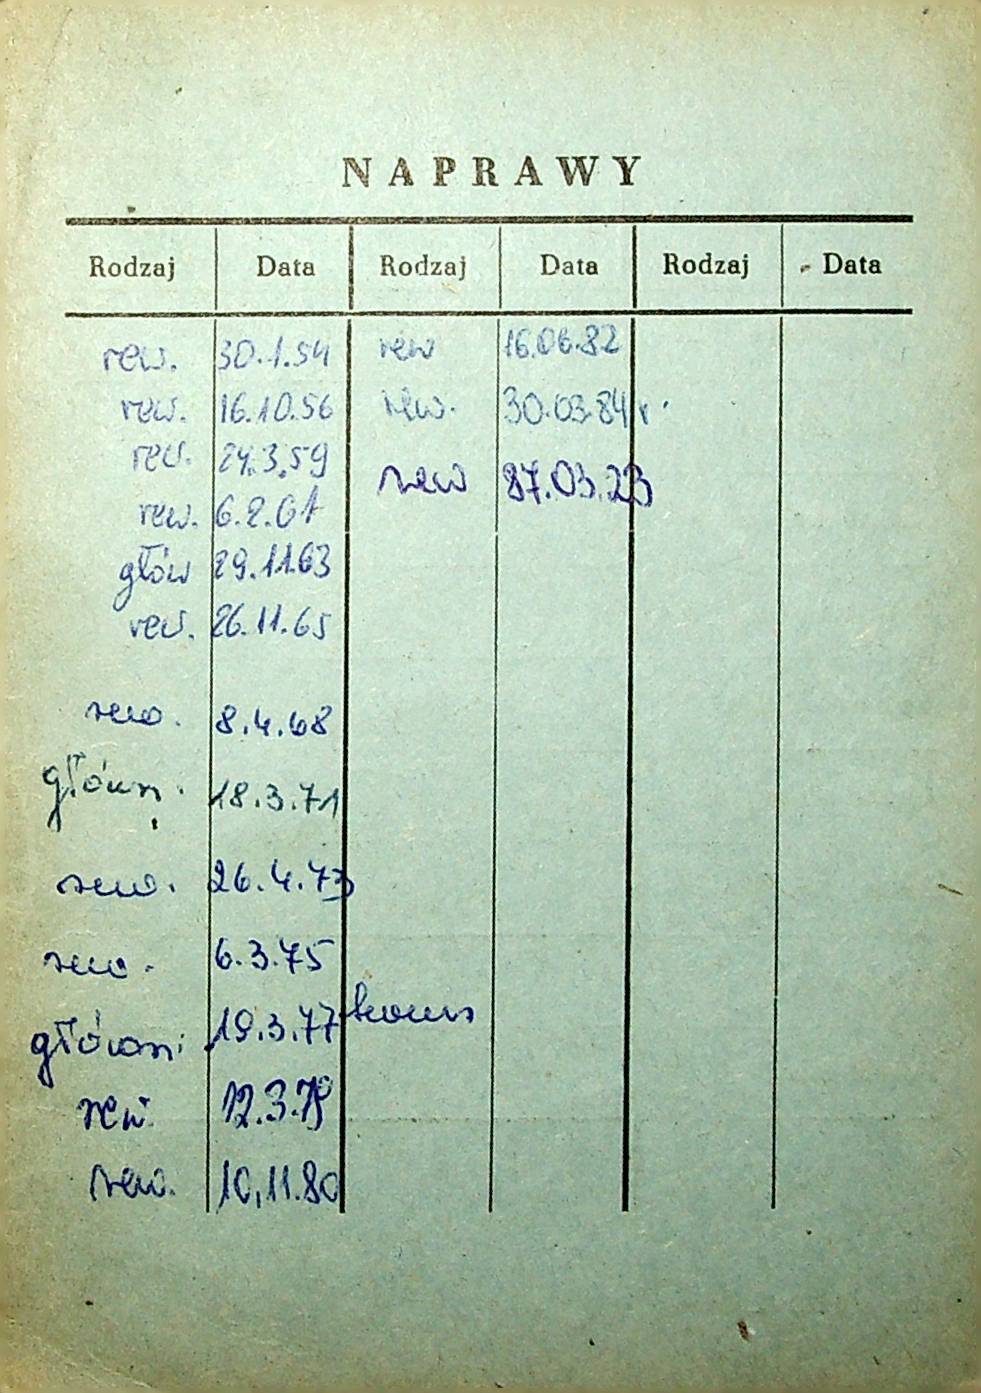 NAPRAWY
Rodzaj Data Rodzaj Data Rodzaj Data
rew. 30.1.54 rew 16.06.82
rew. 16.10.56 rew. 30.03.84 r.
rew. 24.3.59 rew 87.03.23
rew. 6.2.61
głów 29.11.63
rew. 26.11.65
rew. 8.4.68
główn. 18.3.71
rew. 26.4.73
rew. 6.3.75
główn. 19.3.77
rew. 12.3.79
rew. 10.11.80